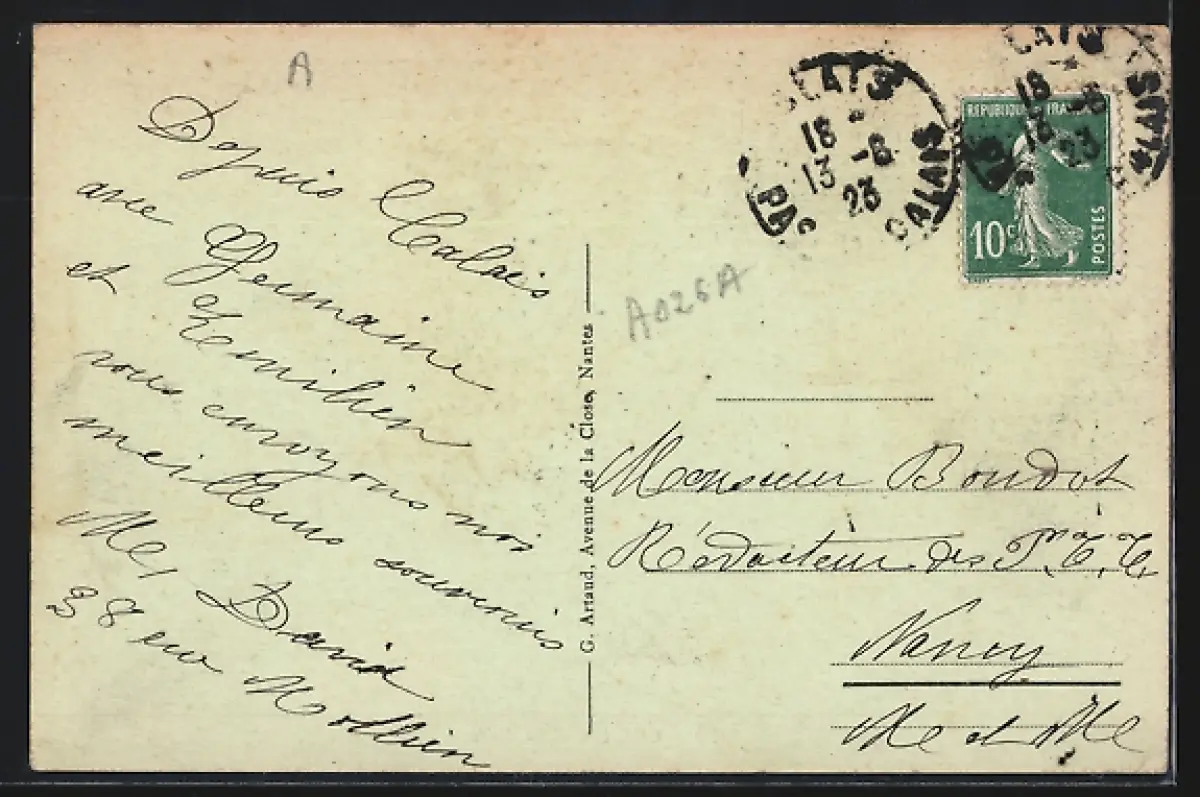 A
Depuis Calais
avec Germaine
et Emilien
nous envoyons nos
meilleurs souvenirs
David
38 rue Mollien
G. Artaud, Avenue de la Close, Nantes
CALAIS
18
13 -6
23
PAS CALAIS
CALAIS
18
13 -6
23
CALAIS
REPUBLIQUE FRANCAISE
10c
POSTES
A026A
Monsieur Boudot
Rédacteur des P.T.T.
Nancy
M et M